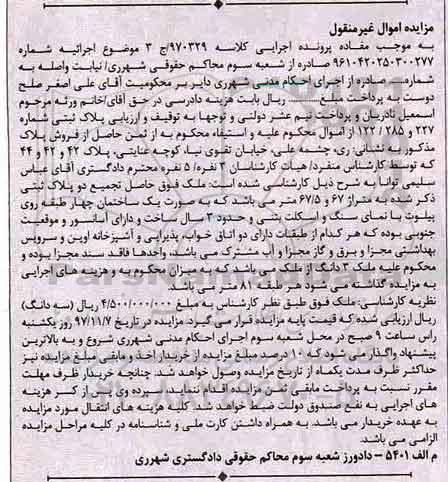 مزایده اموال غیرمنقول
به موجب مفاده پرونده اجرایی کلاسه ۹۷۰۳۲۹/ج ۳ موضوع اجرائیه شماره
۹۶۱۰۴۲۰۲۵۰۳۰۰۲۷۷ صادره از شعبه سوم محاکم حقوقی شهرری/ نیابت واصله به
شماره... صادره از اجرای احکام مدنی شهرری دایر بر محکومیت آقای علی اصغر صلح
دوست به پرداخت مبلغ........ ریال بابت هزینه دادرسی در حق آقای/خانم ورثه مرحوم
اسمعیل نادریان و پرداخت نیم عشر دولتی و توجها به توقیف و ارزیابی پلاک ثبتی شماره
۲۲۷ و ۲۸۵ / ۱۲۲ از اموال محکوم علیه و استیفاء محکوم به از ثمن حاصل از فروش پلاک
مذکور به نشانی: ری، چشمه علی، خیابان تقوی نیا، کوچه عنایتی، پلاک ۴۲ و ۴۲ و ۴۴
که توسط کارشناس منفرد/ هیات کارشناسان ۳ نفره/ ۵ نفره محترم دادگستری آقای عباس
سلیمی توانا به شرح ذیل کارشناسی شده است: ملک فوق حاصل تجمیع دو پلاک ثبتی
ذکر شده به متراژ ۶۷ و ۶۷/۵ متر می باشد که به صورت یک ساختمان چهار طبقه روی
پیلوت با نمای سنگ و اسکلت بتنی و حدود ۳ سال ساخت و دارای آسانسور و موقعیت
جنوبی بوده که هر کدام از طبقات دارای دو اتاق خواب، پذیرایی و آشپزخانه اوپن و سرویس
بهداشتی مجزا و برق و گاز مجزا و آب مشترک می باشد، واحدها فاقد سند مجزا بوده و
محکوم علیه ملک ۳ دانگ از ملک می باشد که به میزان محکوم به و هزینه های اجرایی
به مزایده گذاشته می شود هر طبقه ۸۱ متر می باشد.
نظریه کارشناسی: ملک فوق طبق نظر کارشناس به مبلغ ۴/۵۰۰/۰۰۰/۰۰۰ ریال (سه دانگ)
ریال ارزیابی شده که قیمت پایه مزایده قرار می گیرد. مزایده در تاریخ ۹۷/۱۱/۷ روز یکشنبه
راس ساعت ۹ صبح در محل شعبه سوم اجرای احکام مدنی شهرری شروع و به بالاترین
پیشنهاد واگذار می شود که ۱۰ درصد مبلغ مزایده از خریدار اخذ و مابقی مبلغ مزایده نیز
حداکثر ظرف مدت یکماه از تاریخ مزایده وصول خواهد شد. چنانچه خریدار ظرف مهلت
مقرر نسبت به پرداخت مابقی ثمن مزایده اقدام ننماید، سپرده وی پس از کسر هزینه
های اجرایی به نفع صندوق دولت ضبط خواهد شد. کلیه هزینه های انتقال مورد مزایده
به عهده خریدار می باشد. به همراه داشتن کارت ملی و شناسنامه در کلیه مراحل مزایده
الزامی می باشد.
م الف ۵۴۰۱ – دادورز شعبه سوم محاکم حقوقی دادگستری شهرری